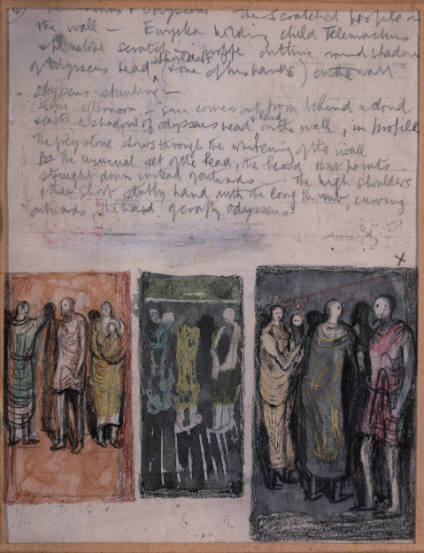 & Odysseus - the scratched profile on
the wall - Eurycka holding child Telemachus
Penelope scratching profile cutting round shadow
of Odysseus head, shoulders (& one of his hands) on the wall
Odysseus standing -
afternoon - sun comes out from behind a cloud
casts a shadow of odysseus head & hand on the wall, in profile
The grey stone shows through the whitening of the wall
the unusual set of the head, the beard that points
straight down instead of outwards - the high shoulders
& the short stubby hand with the long thumb curving
outwards, the hand of crafty odysseus
x